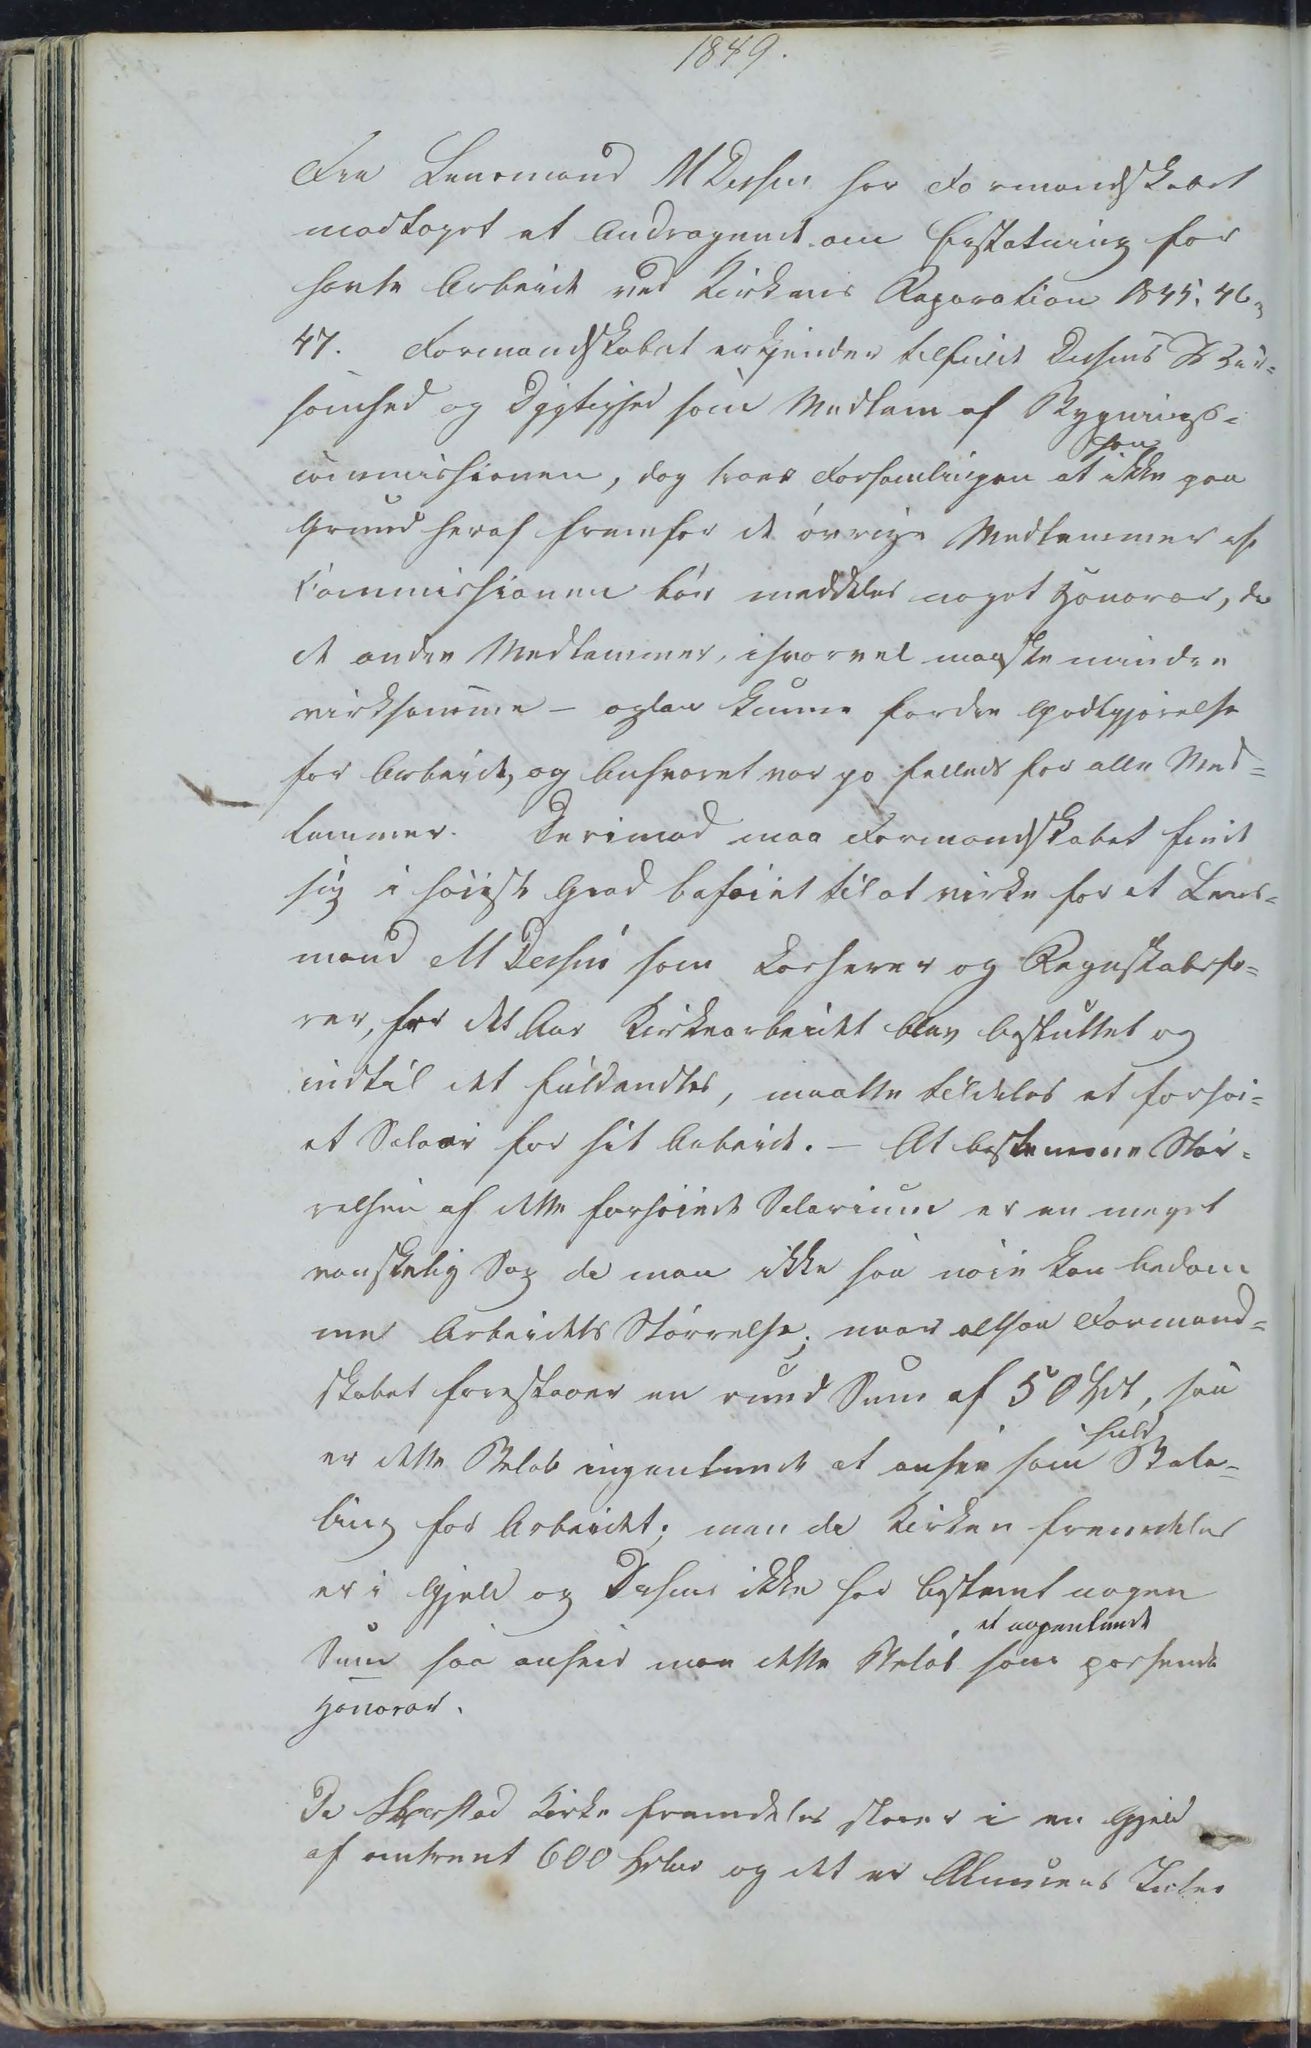 1849.
Fra Lensmand M Dessen har Formandskabet
modtaget et Andragende om Erstatning for
havte Arbeide ved Kirkens Reparation 1845, 46,
47. Formandskabet erkjender tilfulde Dessens Virk=
somhed og Dygtighed som Medlem af Bygnings=
commissionen, dog troer Forsamlingen at han ikke paa
Grund heraf fremfor de øvrige Medlemmer af
Commissionen bør meddeles noget Honorar, da
de andre Medlemmer, ihvorvel maaske mindre
virksomme – ogsaa kunne fordre Godtgjørelse
for Arbeide, og Ansvaret var jo fælleds for alle Med=
lemmer. Derimod maa Formandskabet finde
sig i høieste Grad beføiet til at virke for at Lens=
mand M Dessen som Kasserer og Regnskabsfø=
rer, for det Aar Kirkearbeidet blev besluttet og
indtil det fuldendtes, maatte tildeles et forhøi=
et Salair for sit Arbeide. – At bestemme Stør=
relsen af dette forhøiede Salarium er en meget
vanskelig Sag da man ikke saa nøie kan bedøm
me Arbeidets Størrelse; naar altsaa Formand=
skabet foreslaaer en rund Sum af 50 Spd, saa
er dette Beløb ingenlunde at ansee som fuld Beta=
ling for Arbeidet; men da Kirken fremdeles
er i Gjeld og Dessen ikke har bestemt nogen
Sum saa anseer man dette Beløb som et nogenlunde passende
Honorar.
Da Kirke fremdeles staaer i en Gjeld
af omtrent 600 Spdlr og det er Almuens